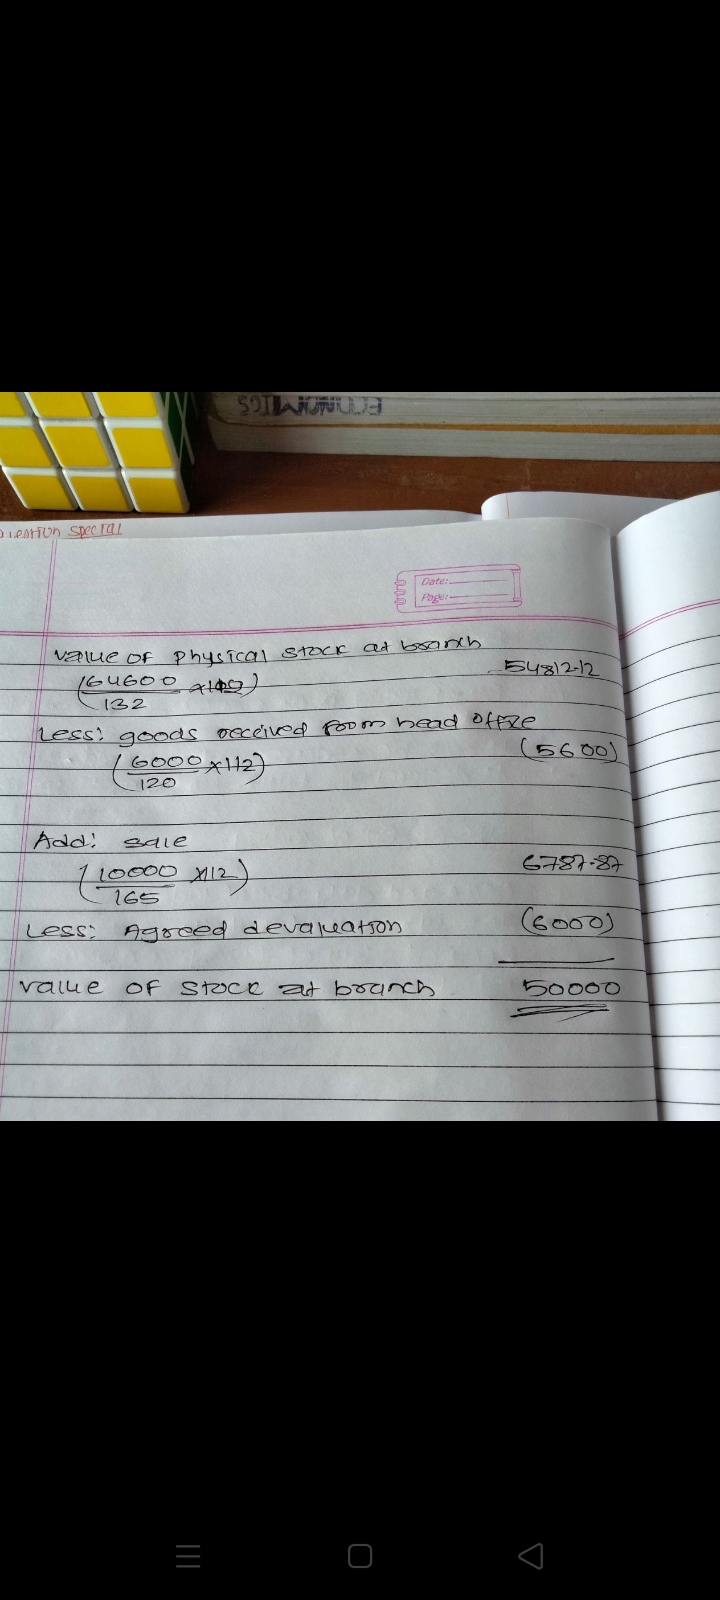 ECONOMICS
question special
Date:
Page:
value of physical stock at branch
(64600/132 x112) 54812.12
Less: goods received from head office
(6000/120 x112) (5600)
Add: sale
(10000/165 x112) 6787.87
Less: Agreed devaluation (6000)
value of stock at branch 50000